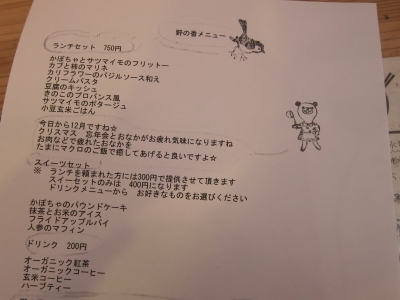 野の香メニュー
ランチセット 750円
かぼちゃとサツマイモのフリットー
カブと柿のマリネ
カリフラワーのバジルソース和え
クリームパスタ
豆腐のキッシュ
きのこのプロバンス風
サツマイモのポタージュ
小豆玄米ごはん
今日から12月ですね☆
クリスマス 忘年会とおなかがお疲れ気味になりますね
お肉などで疲れたおなかを
たまにマクロのご飯で癒してあげると良いですよ☆
スイーツセット
※ ランチを頼まれた方には300円で提供させて頂きます
スイーセットのみは 400円になります
ドリンクメニューから お好きなものをお選びください
かぼちゃのパウンドケーキ
抹茶とお米のアイス
フライドアップルパイ
人参のマフィン
ドリンク 200円
オーガニック紅茶
オーガニックコーヒー
玄米コーヒー
ハーブティー